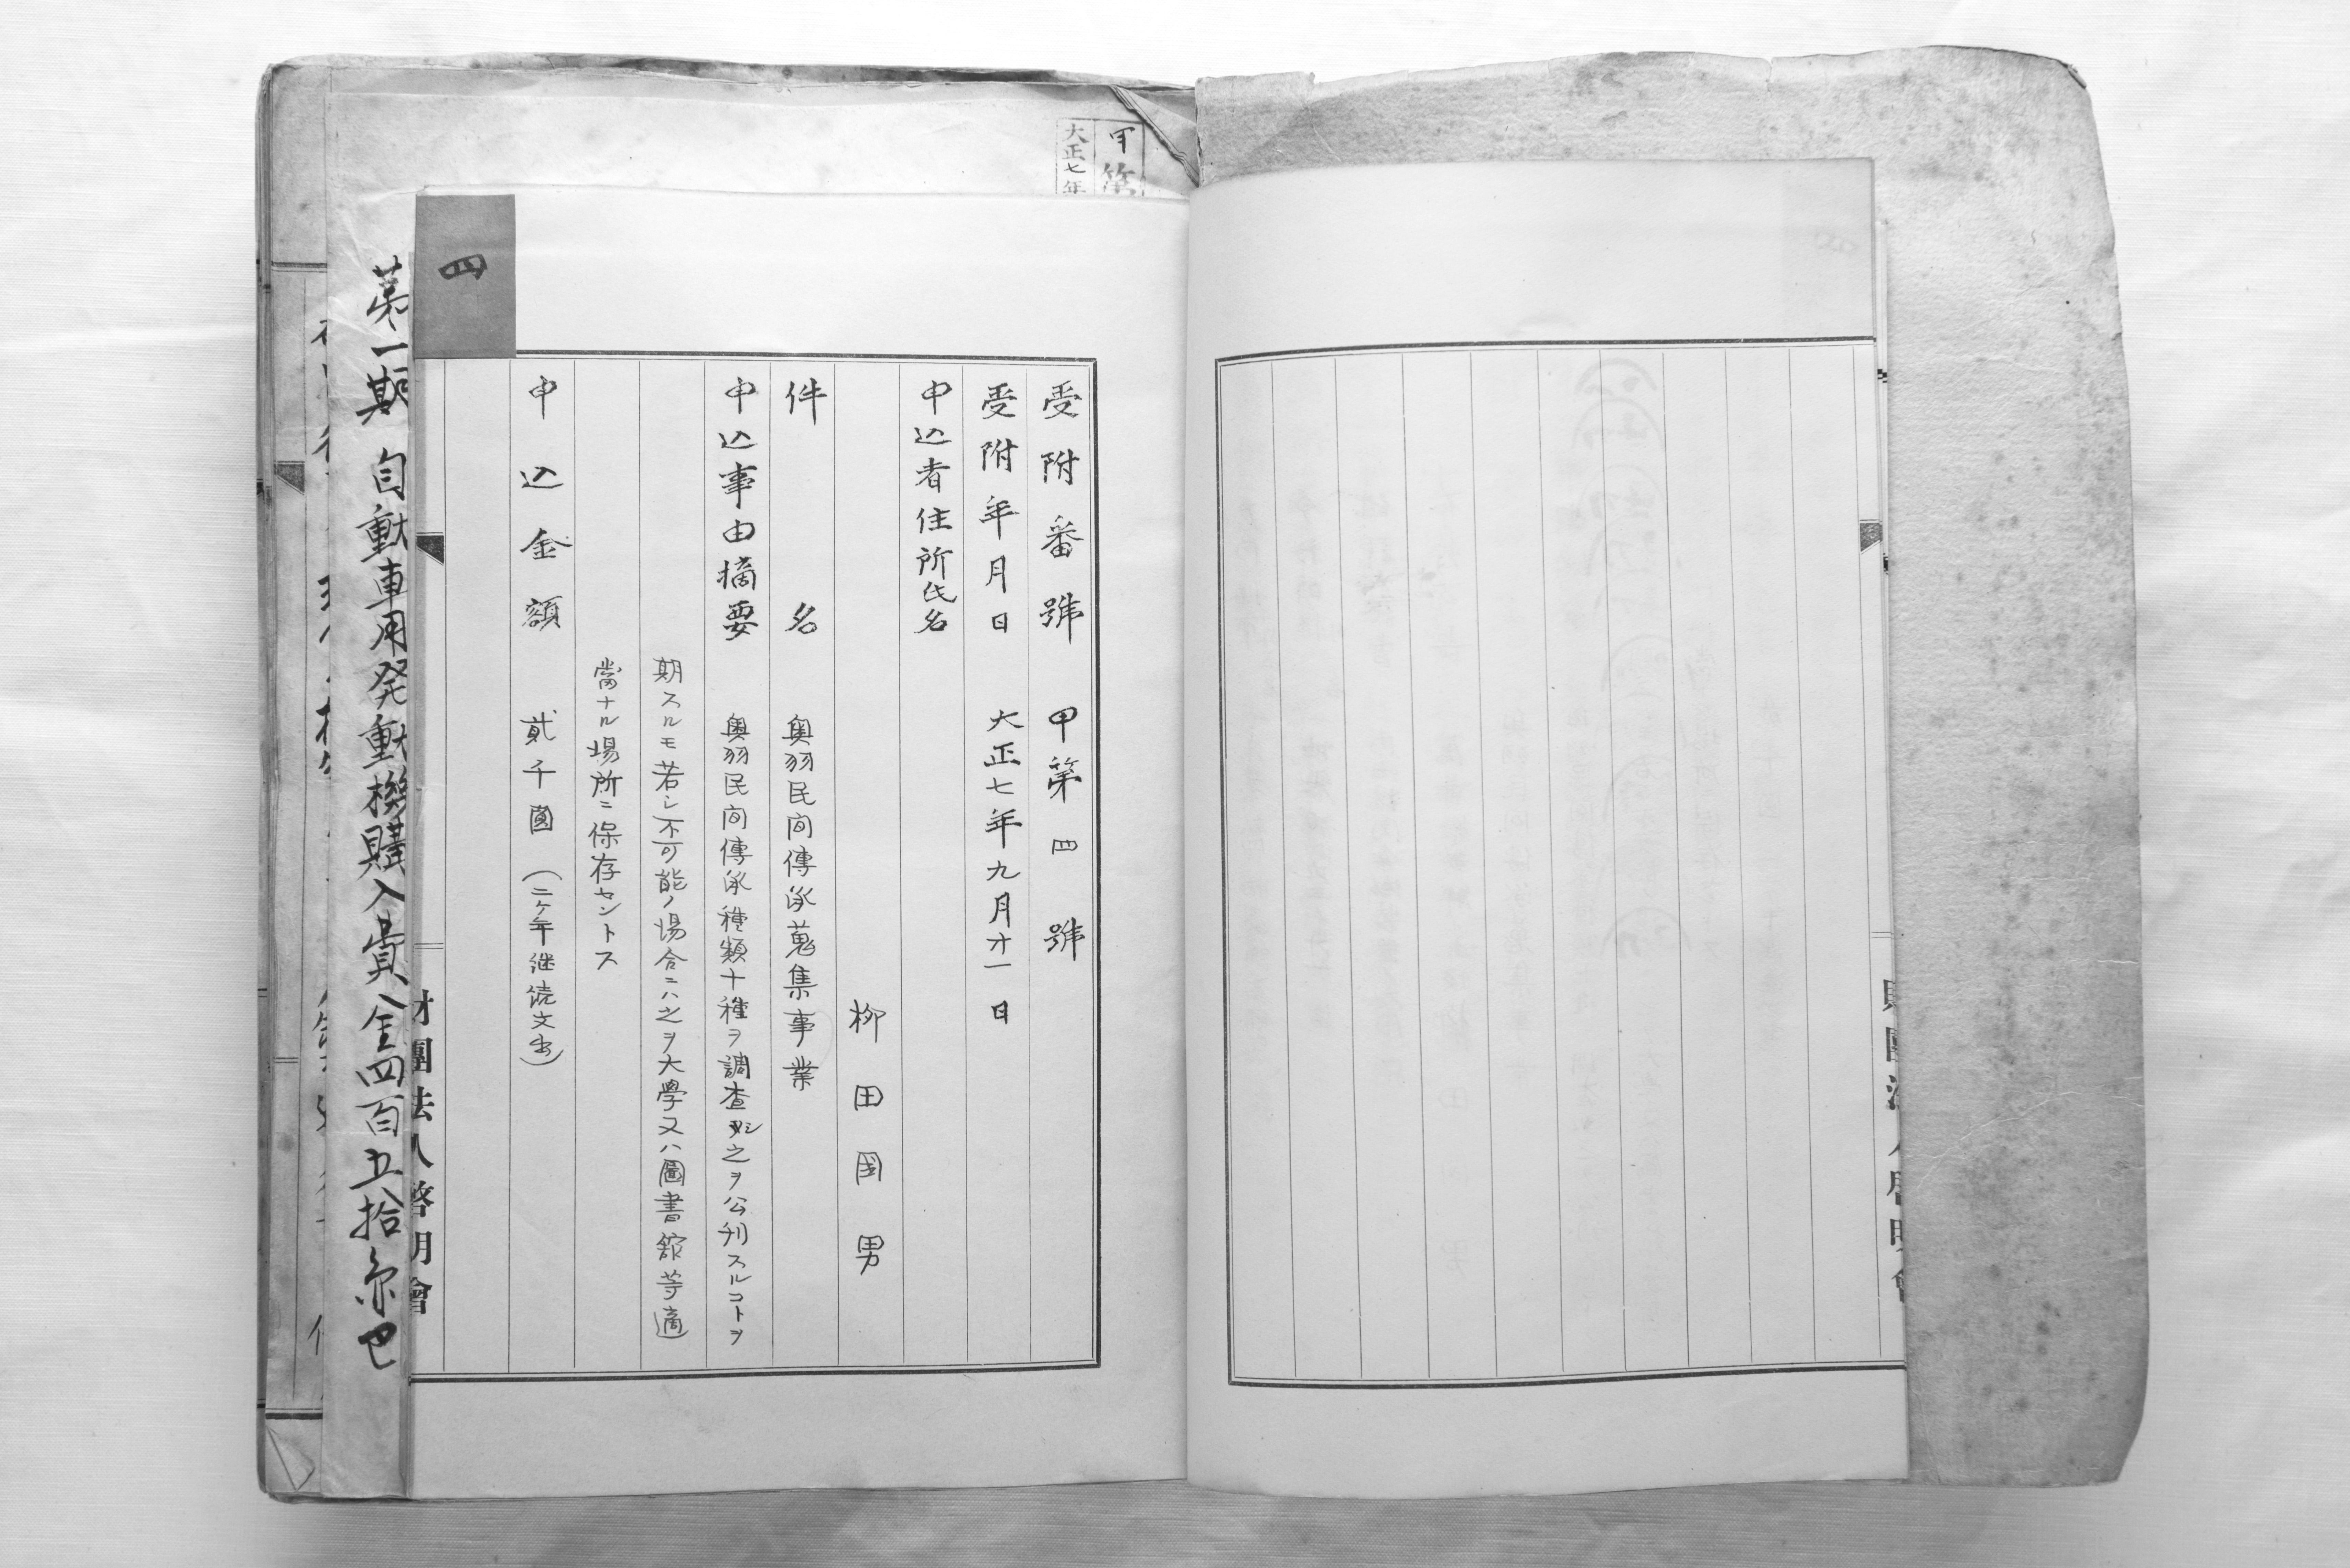 受附番號 甲第四號
受附年月日 大正七年九月廿一日
申込者住所氏名
柳田國男
件名 奥羽民间傳承蒐集事業
申込事由摘要 奥羽民间傳承種類十種ヲ調査シ之ヲ公刊スルコトヲ
期スルモ若シ不可能ノ場合ニハ之ヲ大學又ハ圖書館等適
當ナル場所ニ保存セントス
申込金額 貳千圓(二ケ年継続支出)
四
財團法人啓明會
第一期 自動車用発動機購入費金四百五拾
甲第
大正七年